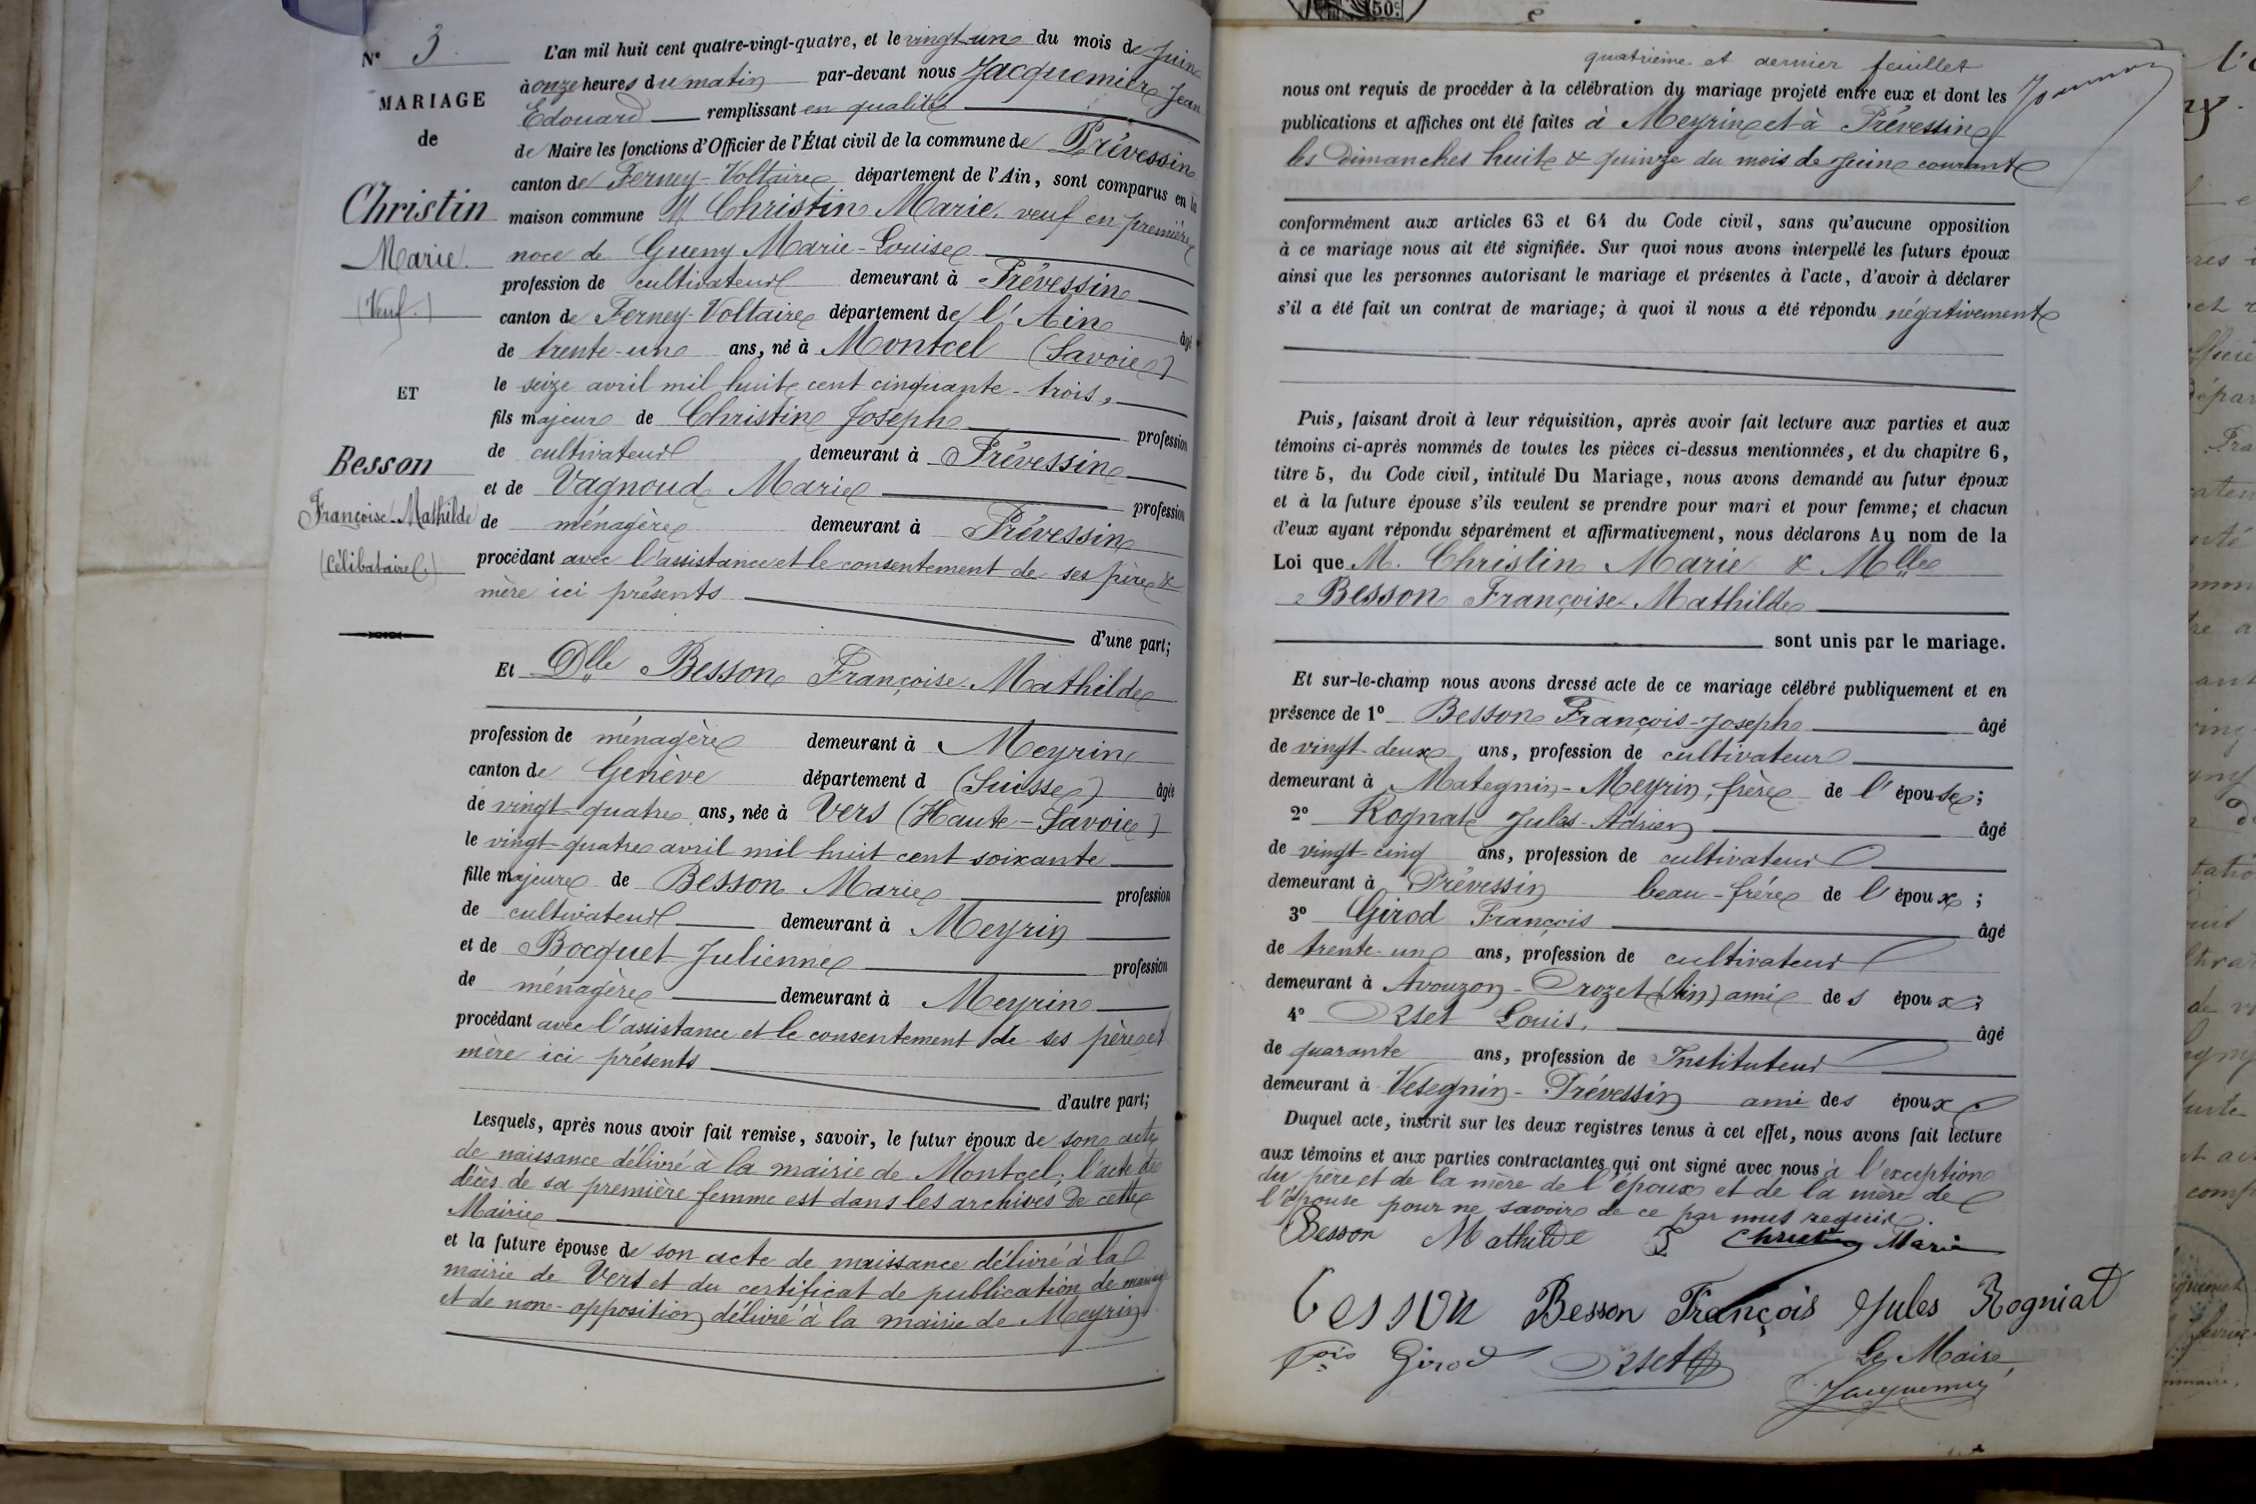 N° 3.
MARIAGE
de
Christin
Marie.
(Veuf.)
ET
Besson
Françoise-Mathilde
(Célibataire.)
L'an mil huit cent quatre-vingt-quatre, et le vingt-un du mois de Juin
à onze heures du matin par-devant nous Jacquemier Jean
Edouard remplissant en qualité
de Maire les fonctions d'Officier de l'État civil de la commune de Prévessin
canton de Ferney-Voltaire département de l'Ain, sont comparus en la
maison commune M Christin Marie, veuf en première
noce de Gueny Marie-Louise
profession de cultivateur demeurant à Prévessin
canton de Ferney-Voltaire département de l'Ain âgé
de trente-un ans, né à Montcel (Savoie)
le seize avril mil huit cent cinquante-trois,
fils majeur de Christin Joseph profession
de cultivateur demeurant à Prévessin
et de Vagnoud Marie profession
de ménagère demeurant à Prévessin
procédant avec l'assistance et le consentement de ses père &
mère ici présents
d'une part;
Et Dlle Besson Françoise-Mathilde
profession de ménagère demeurant à Meyrin
canton de Genève département d (Suisse) âgée
de vingt-quatre ans, née à Vers (Haute-Savoie)
le vingt-quatre avril mil huit cent soixante
fille majeure de Besson Marie profession
de cultivateur demeurant à Meyrin
et de Bocquet Julienne profession
de ménagère demeurant à Meyrin
procédant avec l'assistance et le consentement de ses père et
mère ici présents
d'autre part;
Lesquels, après nous avoir fait remise, savoir, le futur époux de son acte
de naissance délivré à la mairie de Montcel; l'acte de
décès de sa première femme est dans les archives de cette
Mairie
et la future épouse de son acte de naissance délivré à la
mairie de Vers et du certificat de publication de mariage
et de non-opposition délivré à la mairie de Meyrin
50c
quatrième et dernier feuillet
nous ont requis de procéder à la célébration du mariage projeté entre eux et dont les
publications et affiches ont été faites à Meyrin et à Prévessin
les Dimanches huit & quinze du mois de Juin courant
conformément aux articles 63 et 64 du Code civil, sans qu'aucune opposition
à ce mariage nous ait été signifiée. Sur quoi nous avons interpellé les futurs époux
ainsi que les personnes autorisant le mariage et présentes à l'acte, d'avoir à déclarer
s'il a été fait un contrat de mariage; à quoi il nous a été répondu négativement
Puis, faisant droit à leur réquisition, après avoir fait lecture aux parties et aux
témoins ci-après nommés de toutes les pièces ci-dessus mentionnées, et du chapitre 6,
titre 5, du Code civil, intitulé Du Mariage, nous avons demandé au futur époux
et à la future épouse s'ils veulent se prendre pour mari et pour femme; et chacun
d'eux ayant répondu séparément et affirmativement, nous déclarons Au nom de la
Loi que M. Christin Marie & Mlle
Besson Françoise-Mathilde
sont unis par le mariage.
Et sur-le-champ nous avons dressé acte de ce mariage célébré publiquement et en
présence de 1° Besson François-Joseph âgé
de vingt-deux ans, profession de cultivateur
demeurant à Mategnin-Meyrin, frère de l'épouse;
2° Rognat Jules-Adrien âgé
de vingt-cinq ans, profession de cultivateur
demeurant à Prévessin beau-frère de l'époux;
3° Girod François âgé
de trente-un ans, profession de cultivateur
demeurant à Avouzon-Crozet (Ain) ami des époux;
4° Orset Louis. âgé
de quarante ans, profession de Instituteur
demeurant à Vesegnin-Prévessin ami des époux.
Duquel acte, inscrit sur les deux registres tenus à cet effet, nous avons fait lecture
aux témoins et aux parties contractantes qui ont signé avec nous à l'exception
du père et de la mère de l'époux et de la mère de
l'épouse pour ne savoir de ce par nous requis.
Besson Mathilde Christin Marie
Besson Besson François Jules Rogniat
fois Girod Orset
Le Maire,
Jacquemier